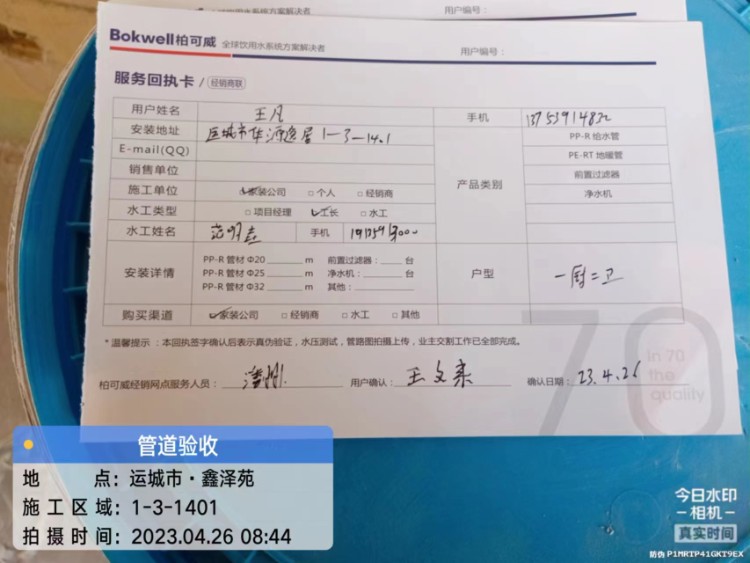 全球饮用水系统方案解决者
用户编号：
Bokwell柏可威 全球饮用水系统方案解决者
用户编号：
服务回执卡 / 经销商联
用户姓名 王凡 手机
安装地址 运城市华源逸居 1-3-1401
产品类别 PP-R 给水管
E-mail(QQ) PE-RT 地暖管
销售单位 前置过滤器
施工单位 ☑家装公司 □个人 □经销商 净水机
水工类型 □项目经理 ☑工长 □水工
水工姓名 手机
安装详情 PP-R 管材 Φ20 ______ m 前置过滤器：____ 台
PP-R 管材 Φ25 ______ m 净水机：____ 台
PP-R 管材 Φ32 ______ m 其他：____
户型 一厨二卫
购买渠道 ☑家装公司 □经销商 □水工 □其他
*温馨提示：本回执签字确认后表示真伪验证，水压测试，管路图拍摄上传，业主交割工作已全部完成。
70
In 70
the
quality
柏可威经销网点服务人员： 用户确认：王文 确认日期：23.4.26
管道验收
地 点：运城市·鑫泽苑
施工区域：1-3-1401
拍摄时间：2023.04.26 08:44
今日水印
-相机-
真实时间
防伪 P1MRTP41GKT9EX